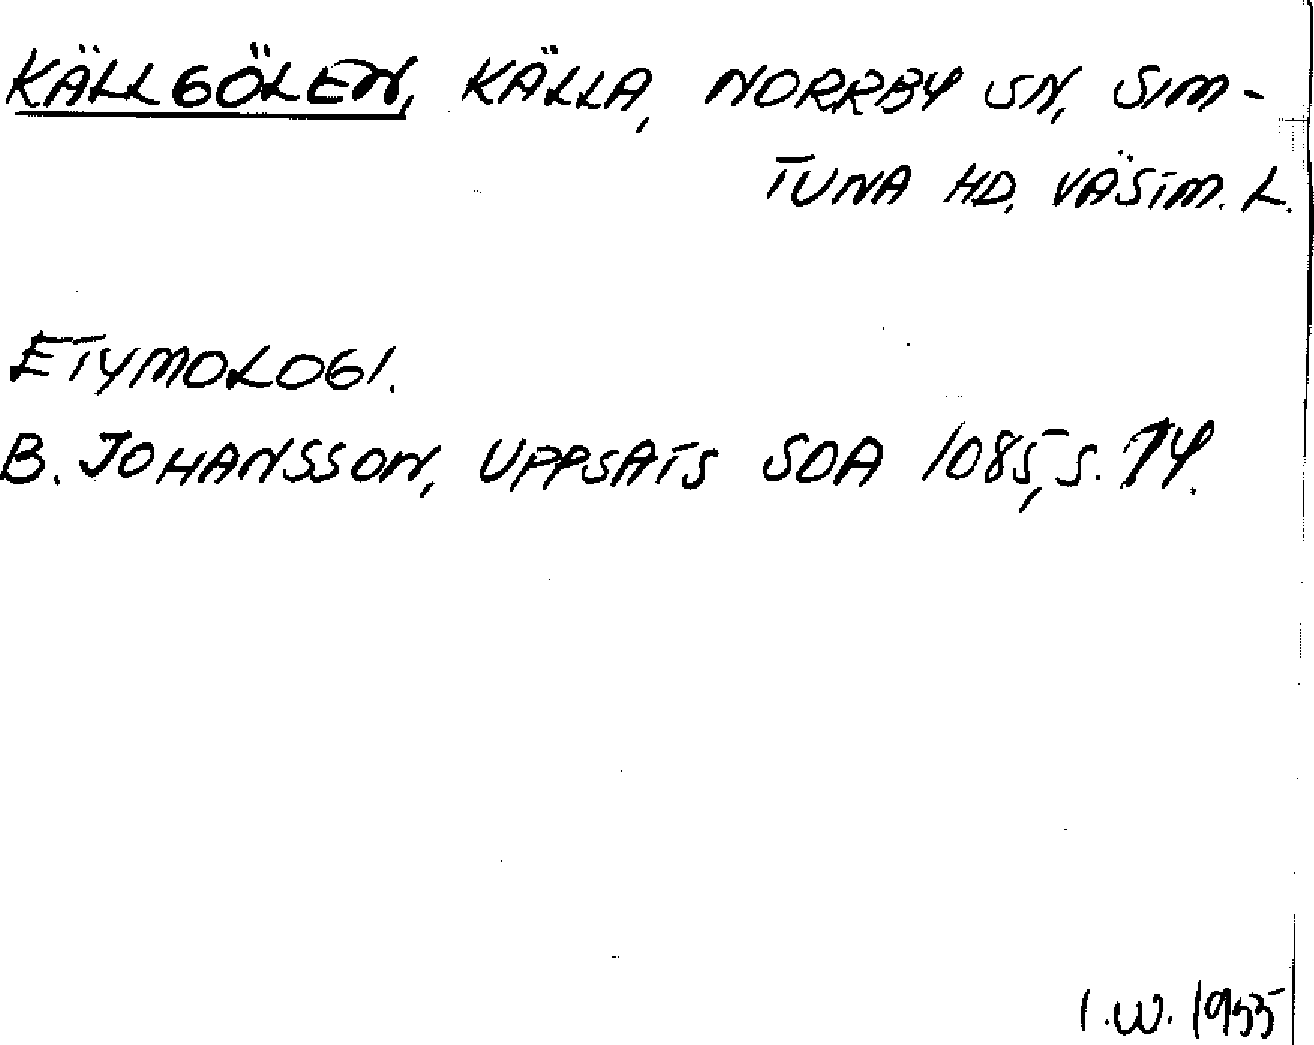 KÄLLGÖLEN, KÄLLA, NORRBY SN, SIM-
TUNA HD, VÄSTM. L.
ETYMOLOGI.
B. JOHANSSON, UPPSATS SOA 1085, S. 74.
I.W. 1955